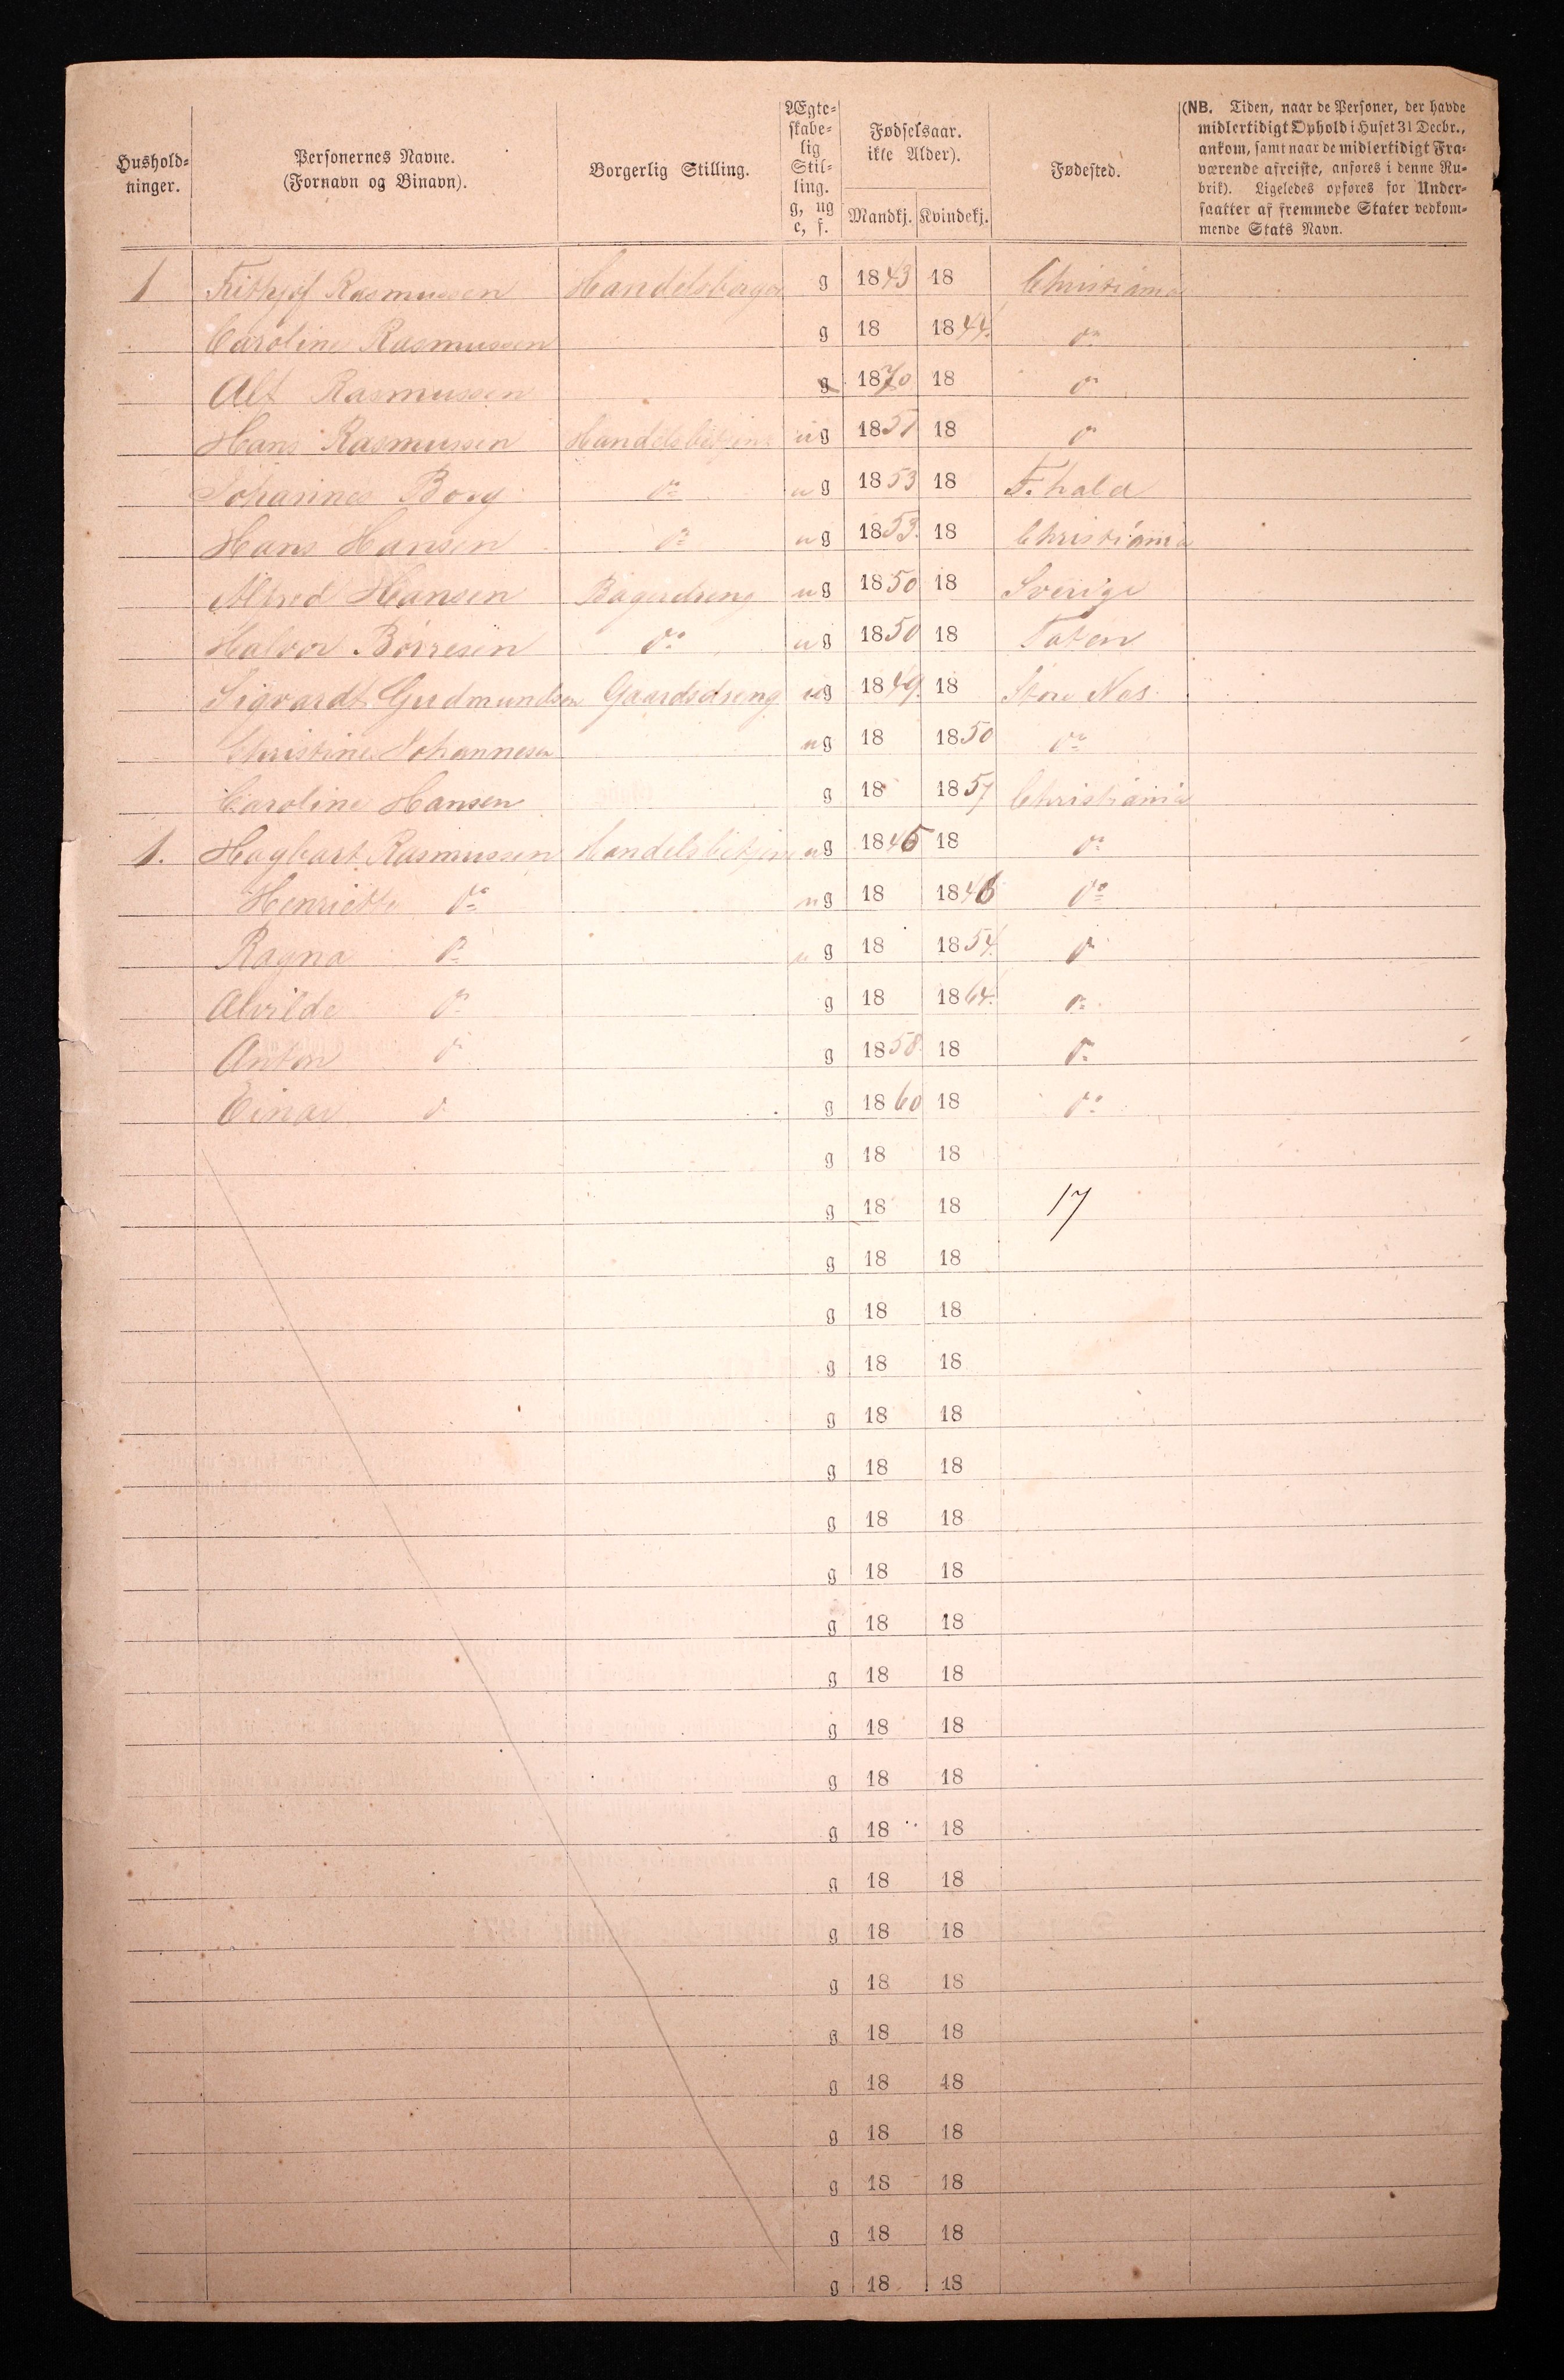 Hushold-
ninger.
Personernes Navne.
(Fornavn og Binavn).
Borgerlig Stilling.
Ægte-
skabe-
lig
Stil-
ling.
g, ug
e, f.
Fødselsaar.
ikke Alder).
Mandkj. Kvindekj.
Fødested.
(NB. Tiden, naar de Personer, der havde
midlertidigt Ophold i Huset 31 Decbr.,
ankom, samt naar de midlertidigt Fra-
værende afreiste, anføres i denne Ru-
brik). Ligeledes opføres for Under-
saatter af fremmede Stater vedkom-
mende Stats Navn.
1 Frithjof Rasmussen Handelsborger g 1843 18 Christiania
Caroline Rasmussen g 18 1844. do
Alf Rasmussen g 1870 18 do
Hans Rasmussen Handelsbetjent ug 1851 18 do
Johannes Borg do ug 1853 18 F.hald
Hans Hansen do ug 1853. 18 Christiania
Alfred Hansen Bagerdreng ug 1850 18 Sverige
Halvor Börresen do ug 1850 18 Toten
Sigvardt Gudmundsen Gaardsdreng ug 1849. 18 Store Nes
Christine Johannesen ug 18 1850 do
Caroline Hansen g 18 1857 Christiania
1. Hagbart Rasmussen Handelsbetjent ug 1845 18 do
Henriette do ug 18 1846 do
Ragna do ug 18 1854. do
Alvilde do g 18 1864. do
Anton do g 1858. 18 do
Einar do g 1860 18 do
g 18 18
g 18 18 17
g 18 18
g 18 18
g 18 18
g 18 18
g 18 18
g 18 18
g 18 18
g 18 18
g 18 18
g 18 18
g 18 18
g 18 18
g 18 18
g 18 18
g 18 18
g 18 18
g 18 18
g 18 18
g 18 18
g 18 18
g 18 18